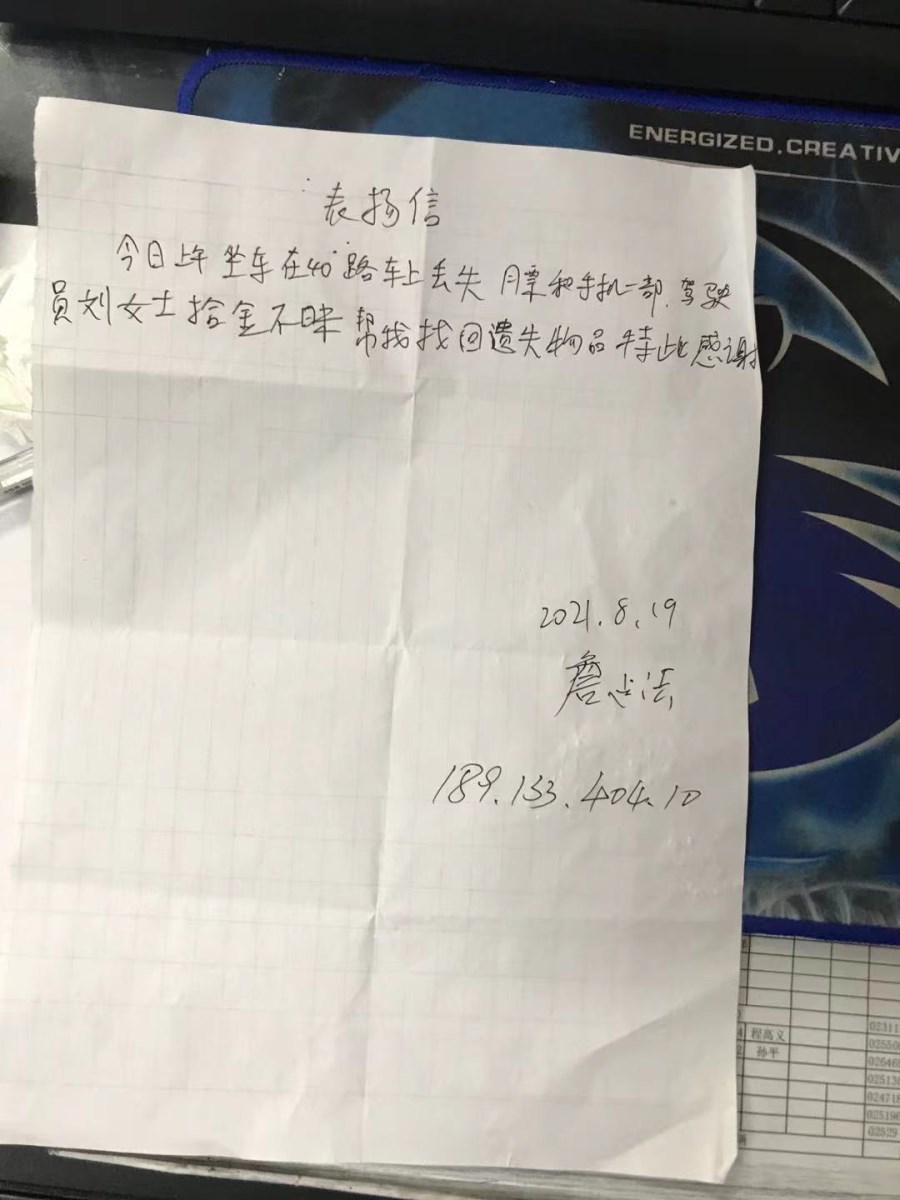 ENERGIZED.CREATIV
表扬信
今日上午坐车在40路车上丢失 月票和手机二部.驾驶
员刘女士拾金不昧 帮我找回遗失物品 特此感谢
2021.8.19
詹志法
189.133.404.10
程高义
孙平
02311
02550
02646
02513
02471
02519
02529